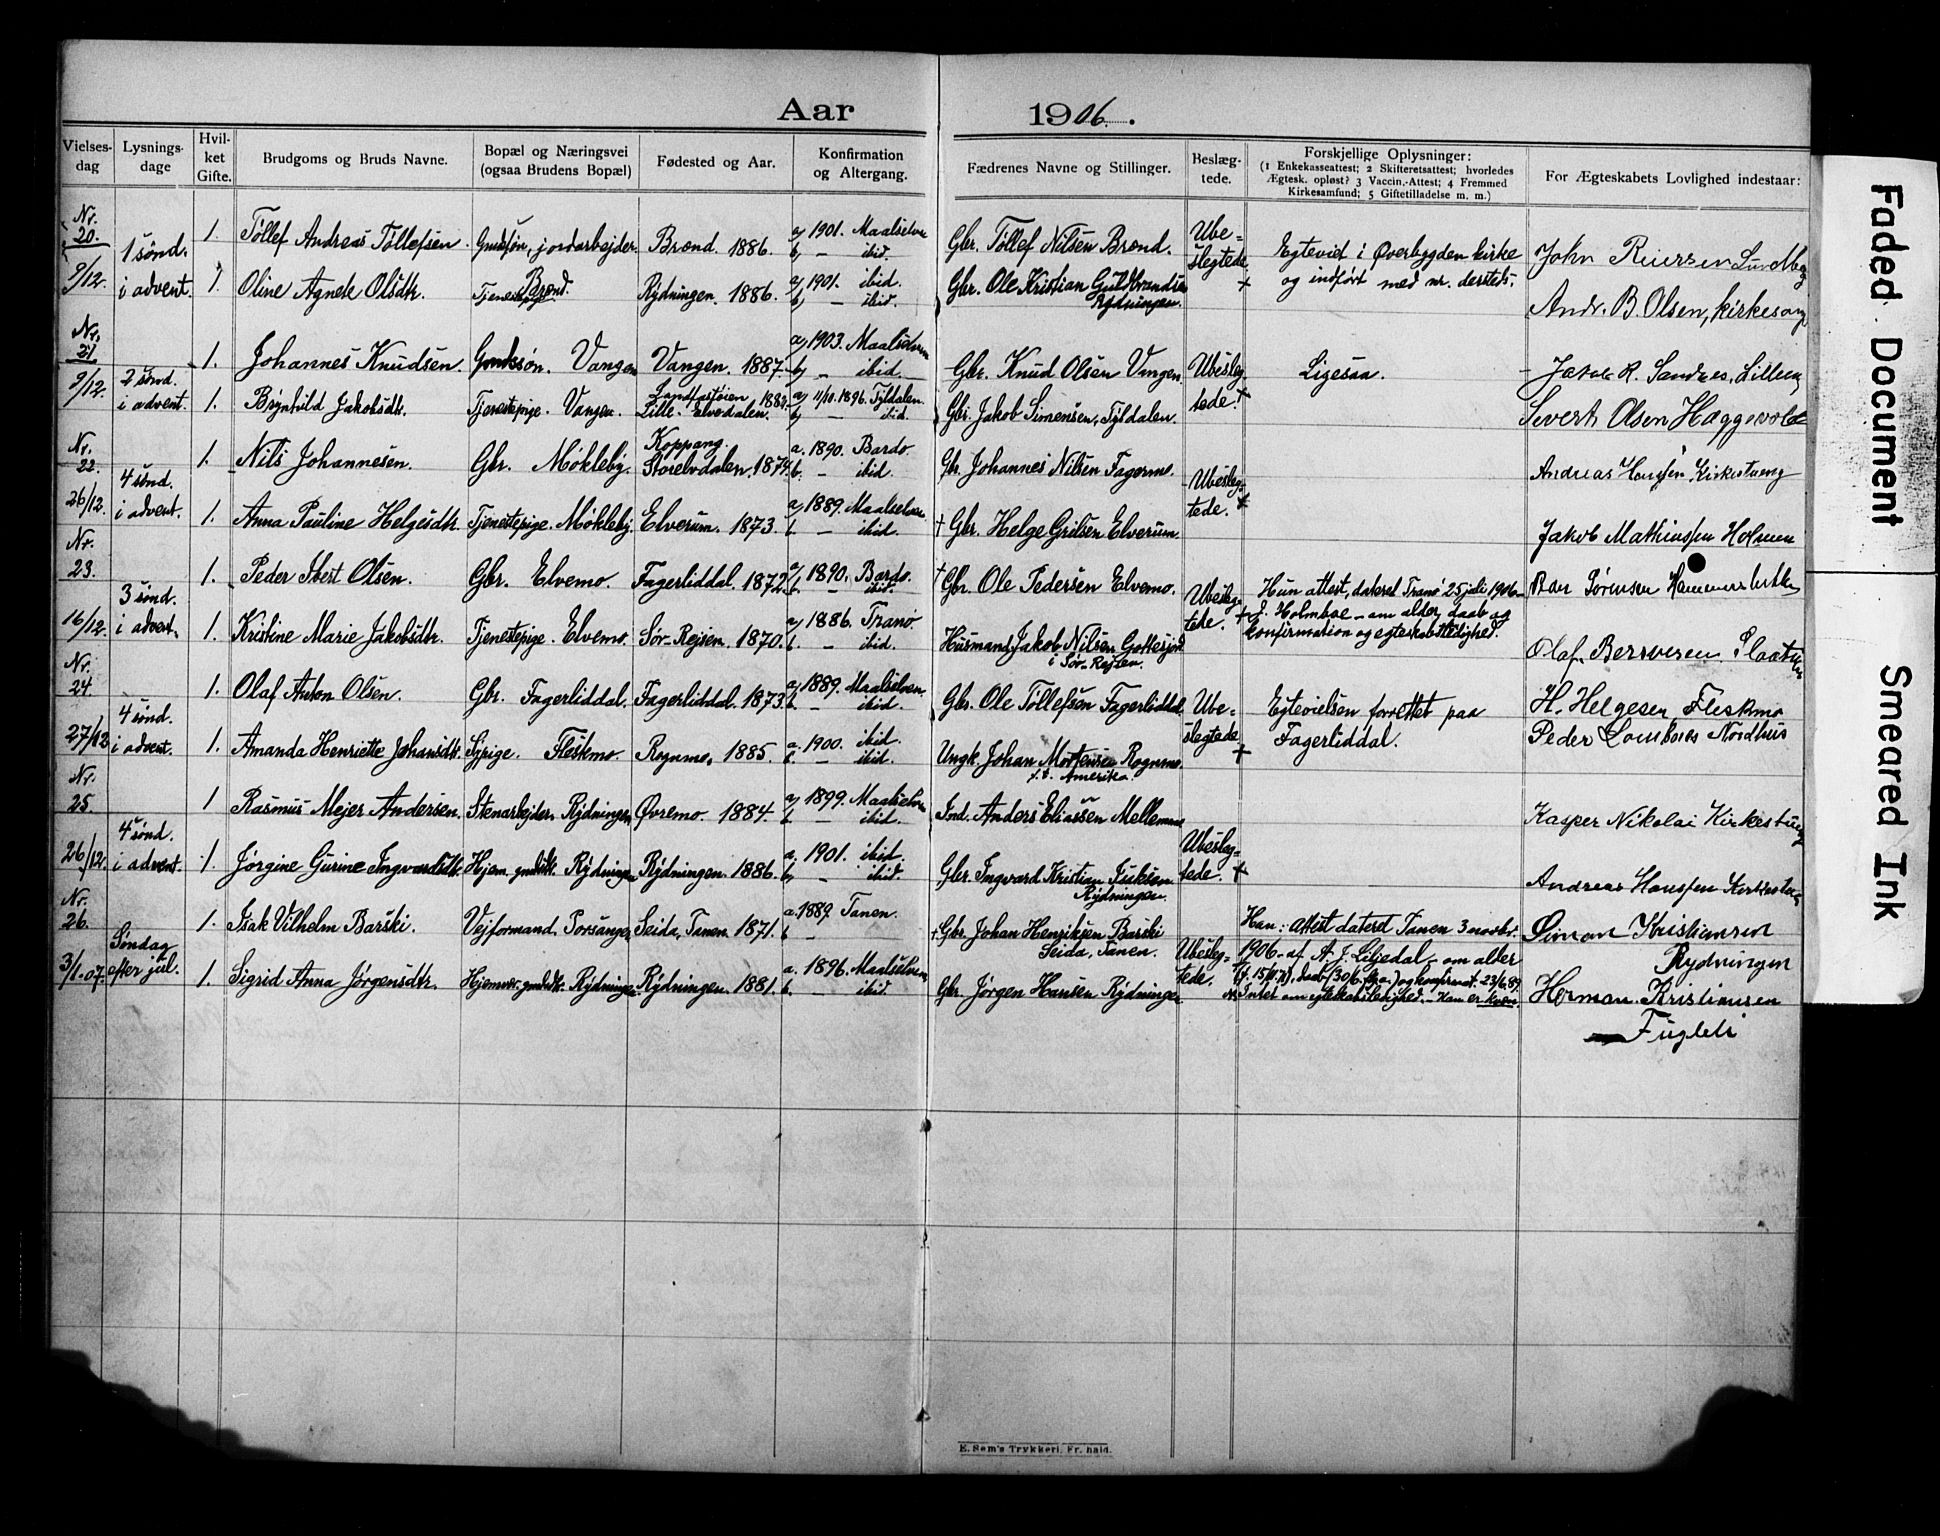 Aar 1906.
Vielses-dag
Lysnings-dage
Hvil-ket Gifte.
Brudgoms og Bruds Navne.
Bopæl og Næringsvei (ogsaa Brudens Bopæl)
Fødested og Aar.
Konfirmation og Altergang.
Fædrenes Navne og Stillinger.
Beslæg-tede.
Forskjellige Oplysninger:
(1 Enkekasseattest; 2 Skifteretsattest; hvorledes
Ægtesk. opløst? 3 Vaccin.-Attest; 4 Fremmed
Kirkesamfund; 5 Giftetilladelse m. m.)
For Ægteskabets Lovlighed indestaar:
Nr. 20. 9/12. 1 sönd. i advent.
1. Töllef Andreas Töllefsen. jordarbejder Brænd. 1886. a, 1901. Maalselven b, — ibid. Gbr. Töllef Nilsen Brænd.
1. Oline Agnete Olsdtr. Tjenestepige Brænd. Rydningen. 1886. a, 1901. ibid. b, — ibid. Gbr. Ole Kristian Guldbrandsen Rydningen.
Ube-slegtede +
Egteviet i Øverbygden kirke
og indført med nr. dersteds.
John
Andr. B. Olsen, kirkesang
Nr. 21 9/12. 2 sönd. i advent.
1. Johannes Knudsen Vangen Vangen. 1887. a, 1903. Maalselven b, — ibid. Gbr. Knud Olsen Vangen.
1. Brynhild Jakobsdtr. Tjenestepige. Vangen. Lille-Elvedalen. a, 11/10. 1896. Tyldalen b, — ibid. Gbr. Jakob Simensen, Tyldalen.
Ubesleg-tede. +
Ligesaa.
Jakob R. Sandnes,
Sivert Olsen Haggevold
Nr. 22. 26/12. 4 sönd. i advent.
1. Nils Johannesen. Gbr. Møkleby. Koppang. Storelvdalen. 1874. a. 1890. Bardo. b. — ibid. Gbr. Johannes Nilsen Fagermo.
1. Anna Pauline Helgesdtr. Tjenestepige. Møkleby. Elverum. 1873. a, 1889. Maalselven b. — ibid. † Gbr. Helge Elverum
Ubesleg-tede. +
Andreas Hansen Kirkestueng
Jakob Mathiassen Holmen
Nr. 23. 16/12. 3 sönd. i advent.
1. Peder Olsen. Gbr. Elvemo. Fagerliddal. 1872. a, 1890. Bardo. b. — ibid. † Gbr. Ole Pedersen Elvemo.
1. Kristine Marie Jakobsdtr. Tjenestepige. Elvemo. Sör-Rejsen. 1870. a, 1886. Tranö b. — ibid. Husmand Jakob Nilsen i Sör-Rejsen.
Ubesleg-tede. +
Hun attest, dateret Tranö 25 juli 1906
J. Holmboe – om alder, daab og
konfirmation og egteskabsledighed.
Sørensen
Olaf
Nr. 24. 27/12 4 sönd. i advent.
1. Olaf Anton Olsen. Gbr. Fagerliddal. Fagerliddal. 1873. a, 1889. Maalselven. b. — ibid. Gbr. Ole Töllefsen Fagerliddal
1. Amanda Henriette Johansdtr. Sypige. Fleskmo. Rognmo. 1885. a. 1900. ibid. b. — ibid. Ungk. Johan Mortensen Rognmo. Amerika.
Ube-slegtede +
Egtevielsen forrettet paa
Fagerliddal.
H. Helgesen Fleskmo
Peder Nordhus
Nr. 25. 26/12. 4 sönd. i advent
1 Rasmus Mejer Andersen. Stenarbejder. Rydningen Øvremo. 1884. a, 1899. Maalselven b. — ibid. Ind. Anders Eliassen
1. Jörgine Gurine Ingvardsdtr. Rydningen Rydningen. 1886. a. 1901. ibid. b, — ibid. Gbr. Ingvard Kristian Isaksen Rydningen.
Ubesleg-tede. +
Kasper Nikolai Kirkestueng
Andreas Hanssen
Nr. 26. 3/1.07. Søndag efter jul.
1. Isak Vilhelm Barski. Vejformand. Porsanger Seida, Tanen. 1871. a. 1887. Tanen. b — † Gbr. Johan Henriksen Barski Seida, Tanen.
1. Sigrid Anna Jörgensdtr. Rydningen Rydningen. 1881. a. 1896. Maalselven b. — ibid. Gbr. Jörgen Hansen Rydningen
Ubesleg-tede.
Han: Attest dateret Tanen 3 novbr.
1906 – af A. J. Liljedal – om alder
Intet om egteskabsledighed. – Han er kvæn.
Simon Kristiansen
Rydningen
Herman Kristiansen
Fugleli
E. Sem's Trykkeri, Fr. hald.
Faded Document
Smeared Ink